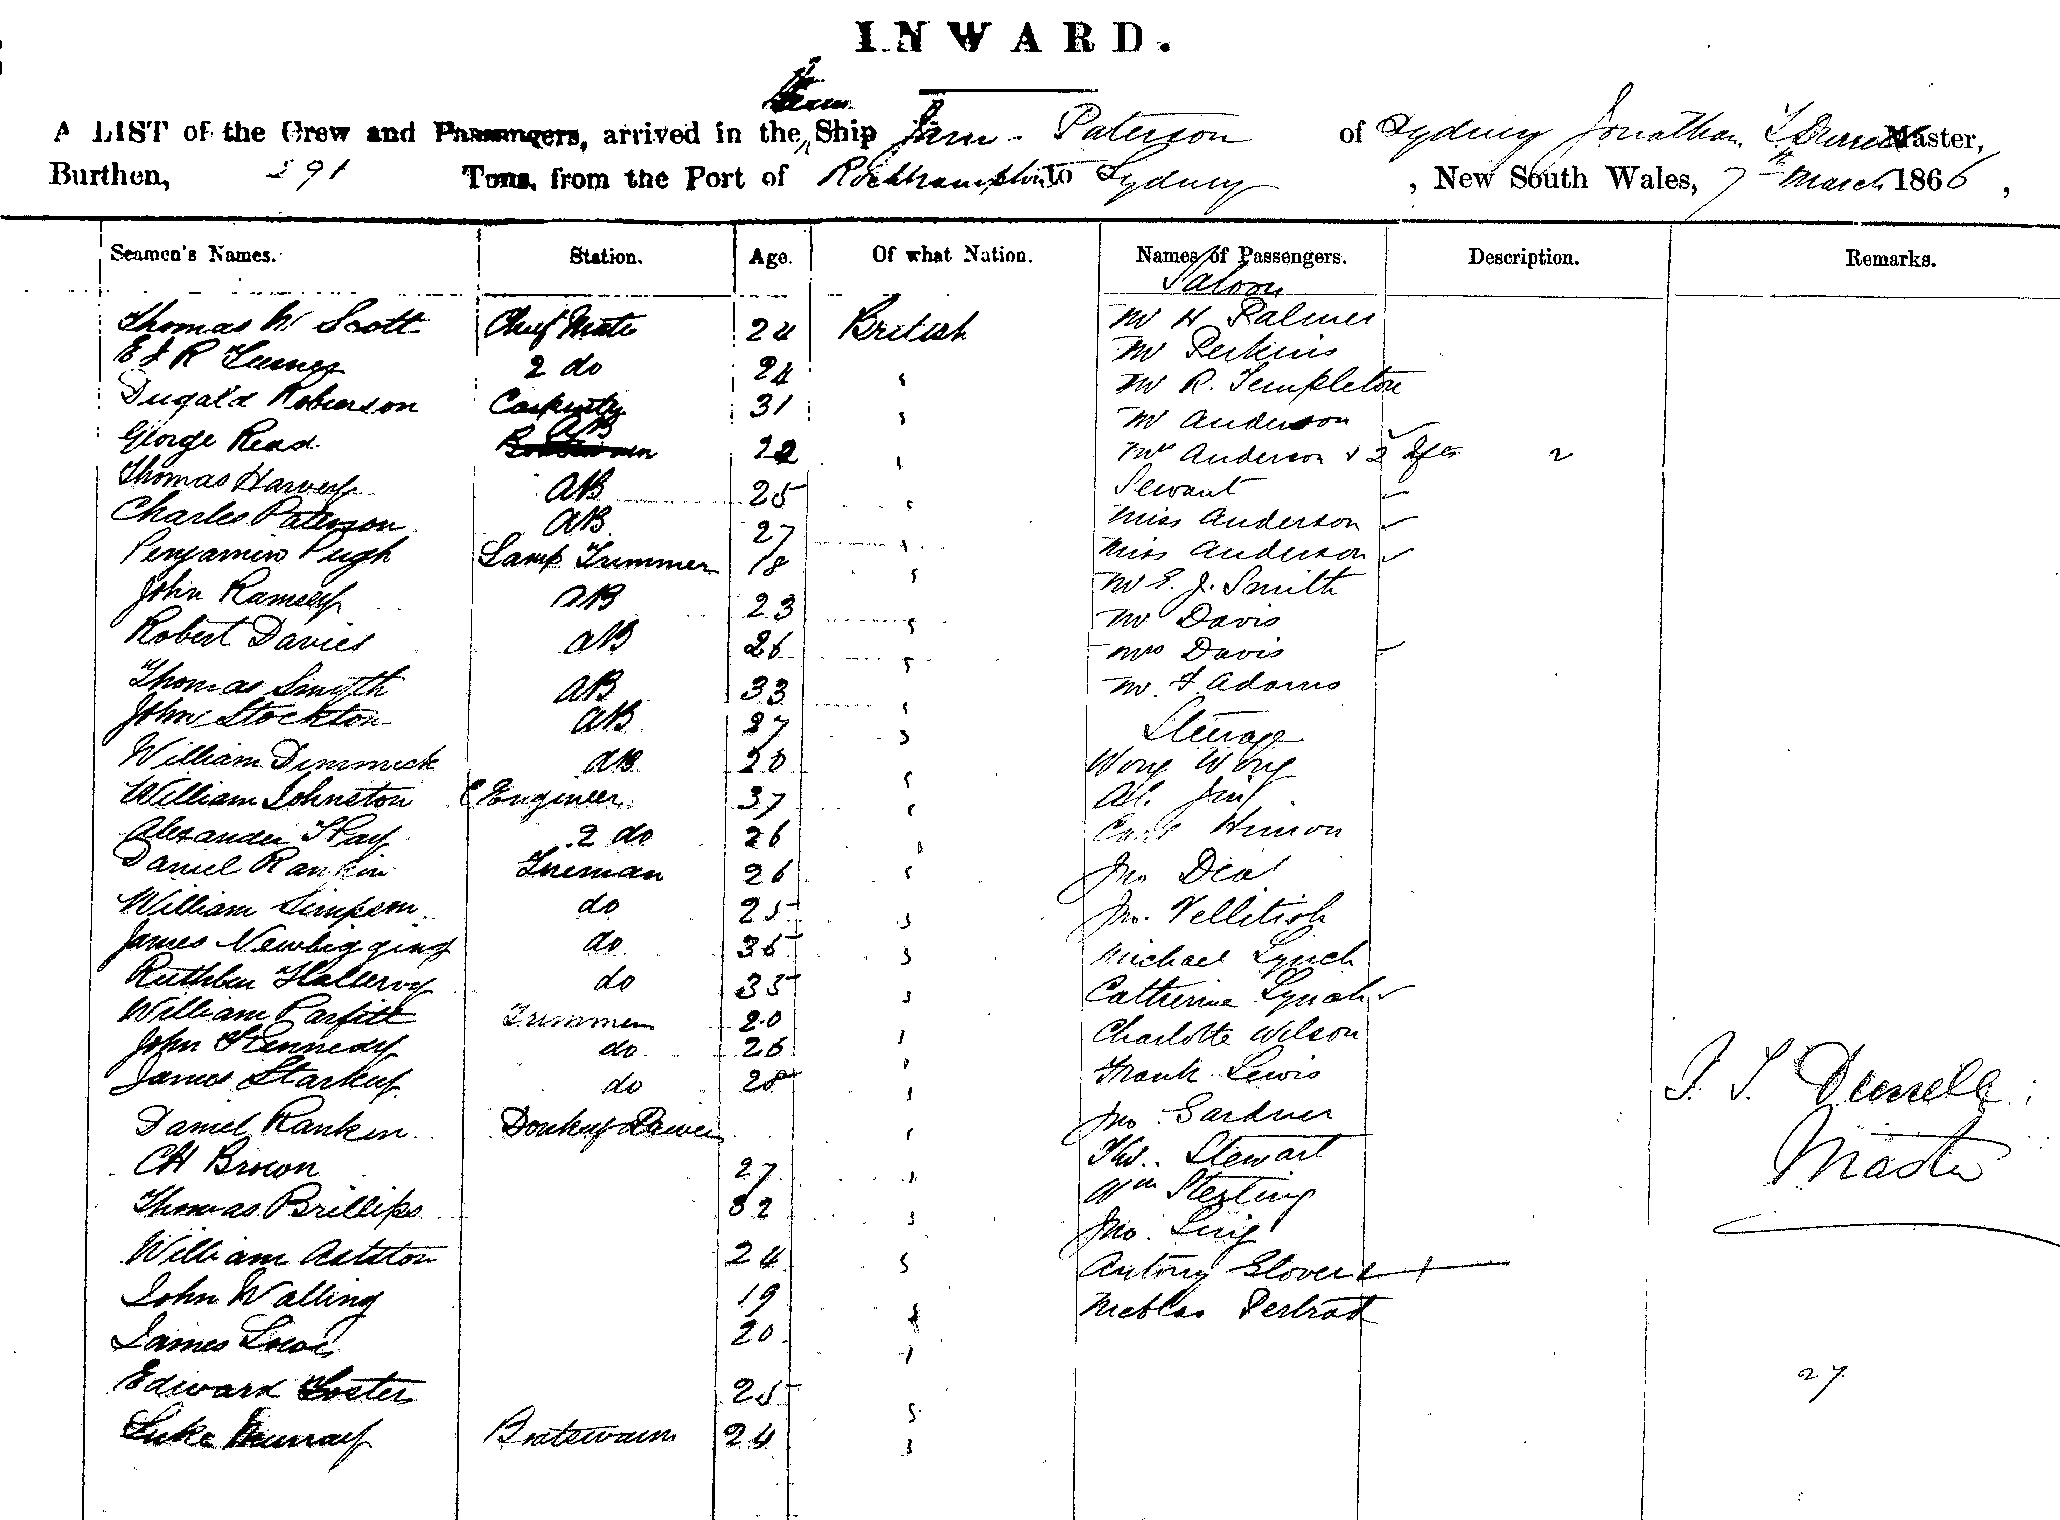 INWARD.
Steam
A LIST of the Crew and Passengers, arrived in the Ship Paterson of Sydney Jonathan Master,
Burthen, 291 Tons, from the Port of Rockhampton to Sydney, New South Wales, 7th March 1866,
Seamen's Names. Station. Age. Of what Nation. Names of Passengers. Description. Remarks.
Saloon
Thomas W Scott Chief Mate 24 British Mr H Palmer
E J R 2 do 24 " Mr Perkins
Dugald Roberson Carpenter 31 " Mr R. Templeton
George Read AB 22 " Mr Anderson
Mrs Anderson + 2 2
Thomas Harvey AB 25 " Servant
Charles Paterson AB 27 " Miss Anderson
Benjamin Pugh Lamp Trimmer 18 " Miss Anderson
John Ramsey AB 23 " Mr E. J. Smith
Robert Davies AB 26 " Mr Davis
Mrs Davis
Thomas Smyth AB 33 " Mr F Adams
John Stockton AB 27 " Steerage
William Dimmick AB 20 " Wong Wong
William Johnston C Engineer 37 " Ah
Alexander Hay 2 do 26 "
Daniel Rankin Fireman 26 " Jno
William Simpson do 25 " Jno.
James Newbigging do 35 " Michael Lynch
Ruthben do 35 " Catherine Lynch
William Parfitt Trimmer 20 " Charlotte Wilson
John Kennedy do 26 " Frank Lewis
James Starkey do 28 " Jno Gardner
J. S.
Daniel Rankin Donkey " Thos. Stewart
Master
C H Brown 27 " Wm Sterling
Thomas 32 " Jno.
William Ashton 24 " Antony Glover
John Walling 19 "
James 20 "
Edward Foster 25 " 27
Luke Murray Boatswain 24 "